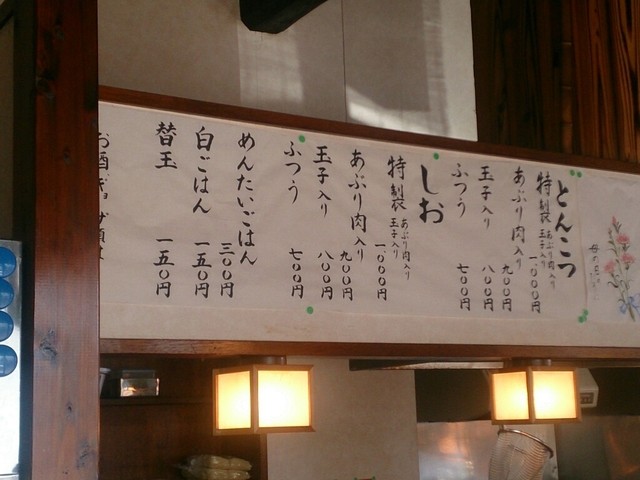 とんこつ
特製 あぶり肉入り 玉子入り 一、〇〇〇円
あぶり肉入り 九〇〇円
玉子入り 八〇〇円
ふつう 七〇〇円
しお
特製 あぶり肉入り 玉子入り 一〇〇〇円
あぶり肉入り 九〇〇円
玉子入り 八〇〇円
ふつう 七〇〇円
めんたいごはん 三〇〇円
白ごはん 一五〇円
替玉 一五〇円
お酒